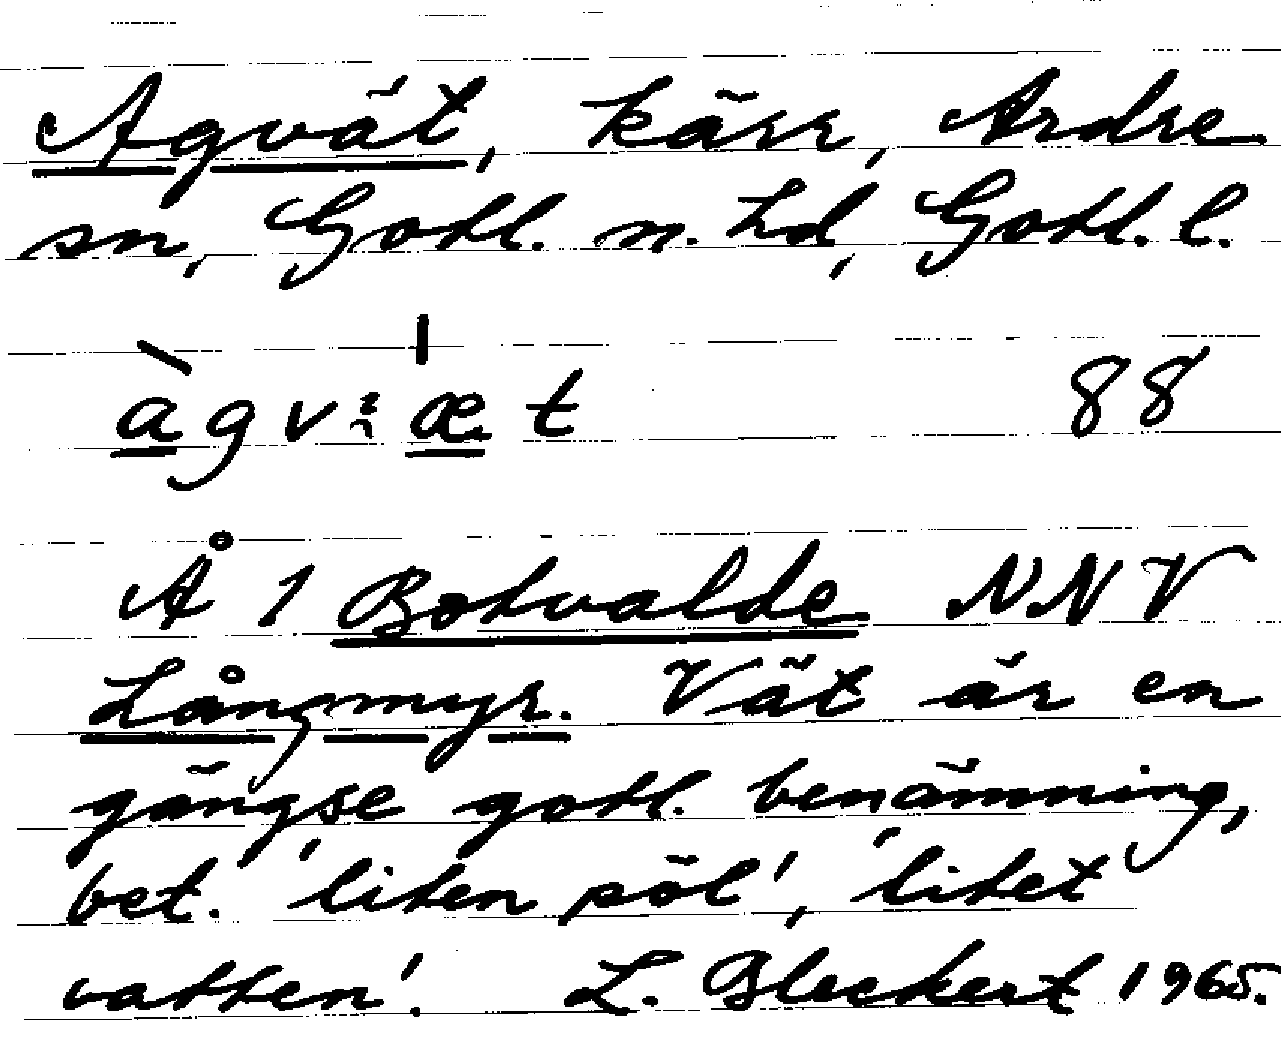 Agvät, kärr, Ardre
sn, Gotl. n. hd, Gotl. l.
àgvːæ̍t 88
Å 1 Botvalde NNV
Långmyr. Vät är en
gängse gotl. benämning,
bet. 'liten pöl', 'litet
vatten'. L. Bleckert 1965.